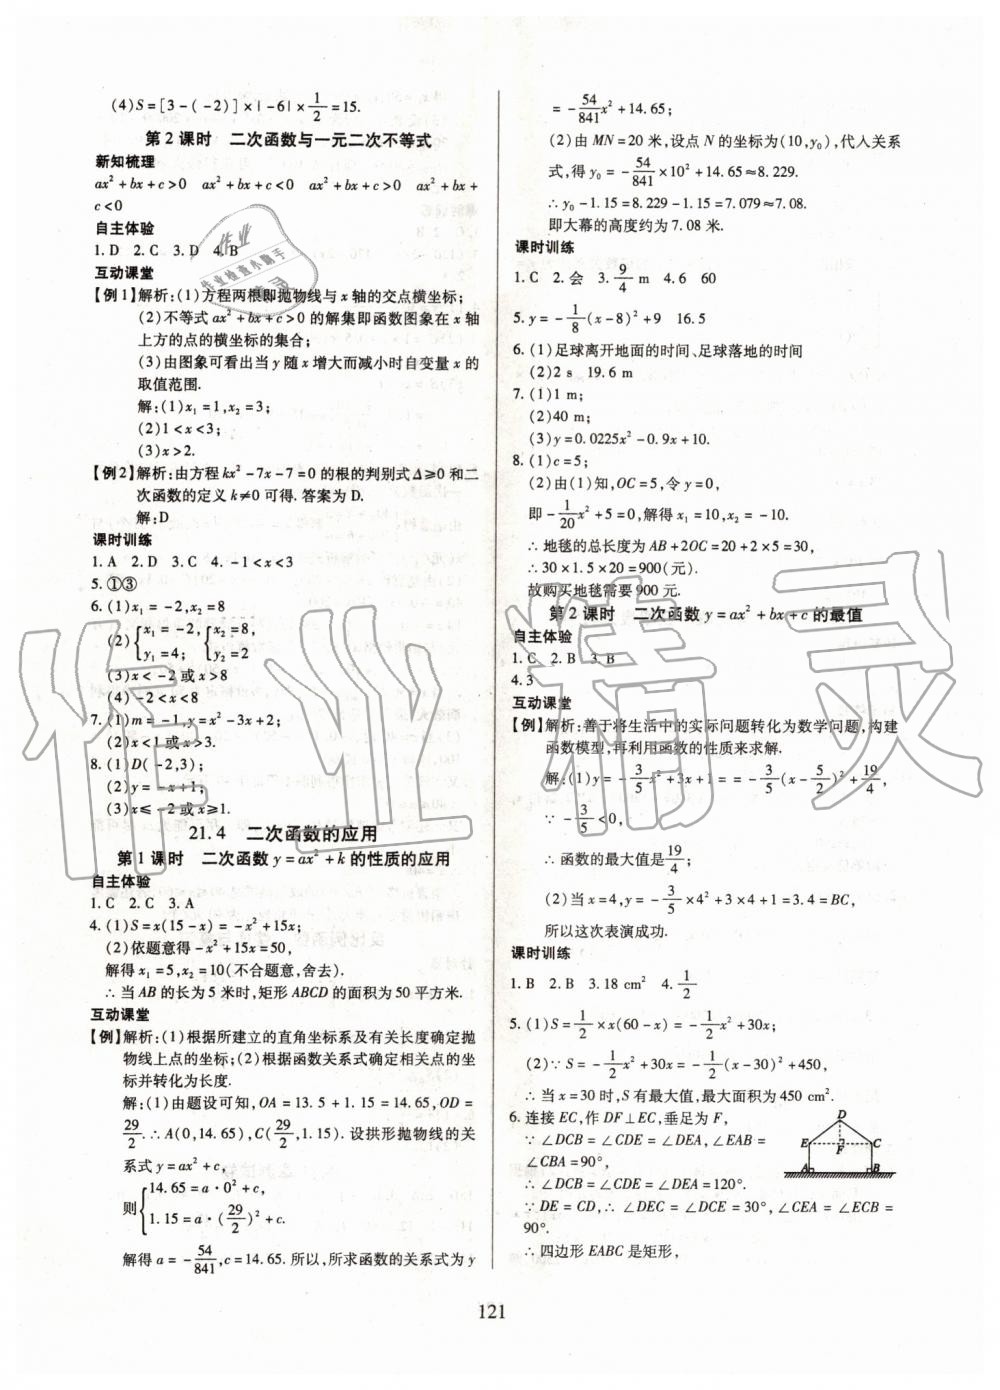 (4)S=[3-(-2)]×|-6|×1/2=15.
第2课时 二次函数与一元二次不等式
新知梳理
ax²+bx+c>0 ax²+bx+c<0 ax²+bx+c>0 ax²+bx+
c<0
自主体验
1.D 2.C 3.D 4.B
互动课堂
【例1】解析:(1)方程两根即抛物线与x轴的交点横坐标;
(2)不等式ax²+bx+c>0的解集即函数图象在x轴
上方的点的横坐标的集合;
(3)由图象可看出当y随x增大而减小时自变量x的
取值范围.
解:(1)x₁=1,x₂=3;
(2)1<x<3;
(3)x>2.
【例2】解析:由方程kx²-7x-7=0的根的判别式Δ≥0和二
次函数的定义k≠0可得.答案为D.
解:D
课时训练
1.A 2.D 3.C 4.-1<x<3
5.①③
6.(1)x₁=-2,x₂=8
(2){x₁=-2, {x₂=8,
y₁=4; y₂=2
(3)x<-2或x>8
(4)-2<x<8
7.(1)m=-1,y=x²-3x+2;
(2)x<1或x>3.
8.(1)D(-2,3);
(2)y=-x+1;
(3)x≤-2或x≥1.
21.4 二次函数的应用
第1课时 二次函数y=ax²+k的性质的应用
自主体验
1.C 2.C 3.A
4.(1)S=x(15-x)=-x²+15x;
(2)依题意得-x²+15x=50,
解得x₁=5,x₂=10(不合题意,舍去).
∴当AB的长为5米时,矩形ABCD的面积为50平方米.
互动课堂
【例】解析:(1)根据所建立的直角坐标系及有关长度确定抛
物线上点的坐标;(2)根据函数关系式确定相关点的坐
标并转化为长度.
解:(1)由题设可知,OA=13.5+1.15=14.65,OD=
29/2.∴A(0,14.65),C(29/2,1.15).设拱形抛物线的关
系式为y=ax²+c,
则{14.65=a·0²+c,
1.15=a·(29/2)²+c.
解得a=-54/841,c=14.65.所以,所求函数的关系式为y
=-54/841x²+14.65;
(2)由MN=20米,设点N的坐标为(10,y₀),代入关系
式,得y₀=-54/841×10²+14.65≈8.229.
∴y₀-1.15=8.229-1.15=7.079≈7.08.
即大幕的高度约为7.08米.
课时训练
1.C 2.会 3.9/4 m 4.6 60
5.y=-1/8(x-8)²+9 16.5
6.(1)足球离开地面的时间、足球落地的时间
(2)2 s 19.6 m
7.(1)1 m;
(2)40 m;
(3)y=0.0225x²-0.9x+10.
8.(1)c=5;
(2)由(1)知,OC=5,令y=0,
即-1/20x²+5=0,解得x₁=10,x₂=-10.
∴地毯的总长度为AB+2OC=20+2×5=30,
∴30×1.5×20=900(元).
故购买地毯需要900元.
第2课时 二次函数y=ax²+bx+c的最值
自主体验
1.C 2.B 3.B
4.3
互动课堂
【例】解析:善于将生活中的实际问题转化为数学问题,构建
函数模型,再利用函数的性质来求解.
解:(1)y=-3/5x²+3x+1==-3/5(x-5/2)²+19/4,
∵-3/5<0,
∴函数的最大值是19/4;
(2)当x=4,y=-3/5×4²+3×4+1=3.4=BC,
所以这次表演成功.
课时训练
1.B 2.B 3.18 cm² 4.1/2
5.(1)S=1/2×x(60-x)=-1/2x²+30x;
(2)∵S=-1/2x²+30x=-1/2(x-30)²+450,
∴当x=30时,S有最大值,最大面积为450 cm².
6.连接EC,作DF⊥EC,垂足为F,
∵∠DCB=∠CDE=∠DEA,∠EAB=
∠CBA=90°,
∴∠DCB=∠CDE=∠DEA=120°.
∵DE=CD,∴∠DEC=∠DCE=30°,∠CEA=∠ECB=
90°.
∴四边形EABC是矩形,
D
E F C
A B
121
作业精灵
作业
作业检查小助手